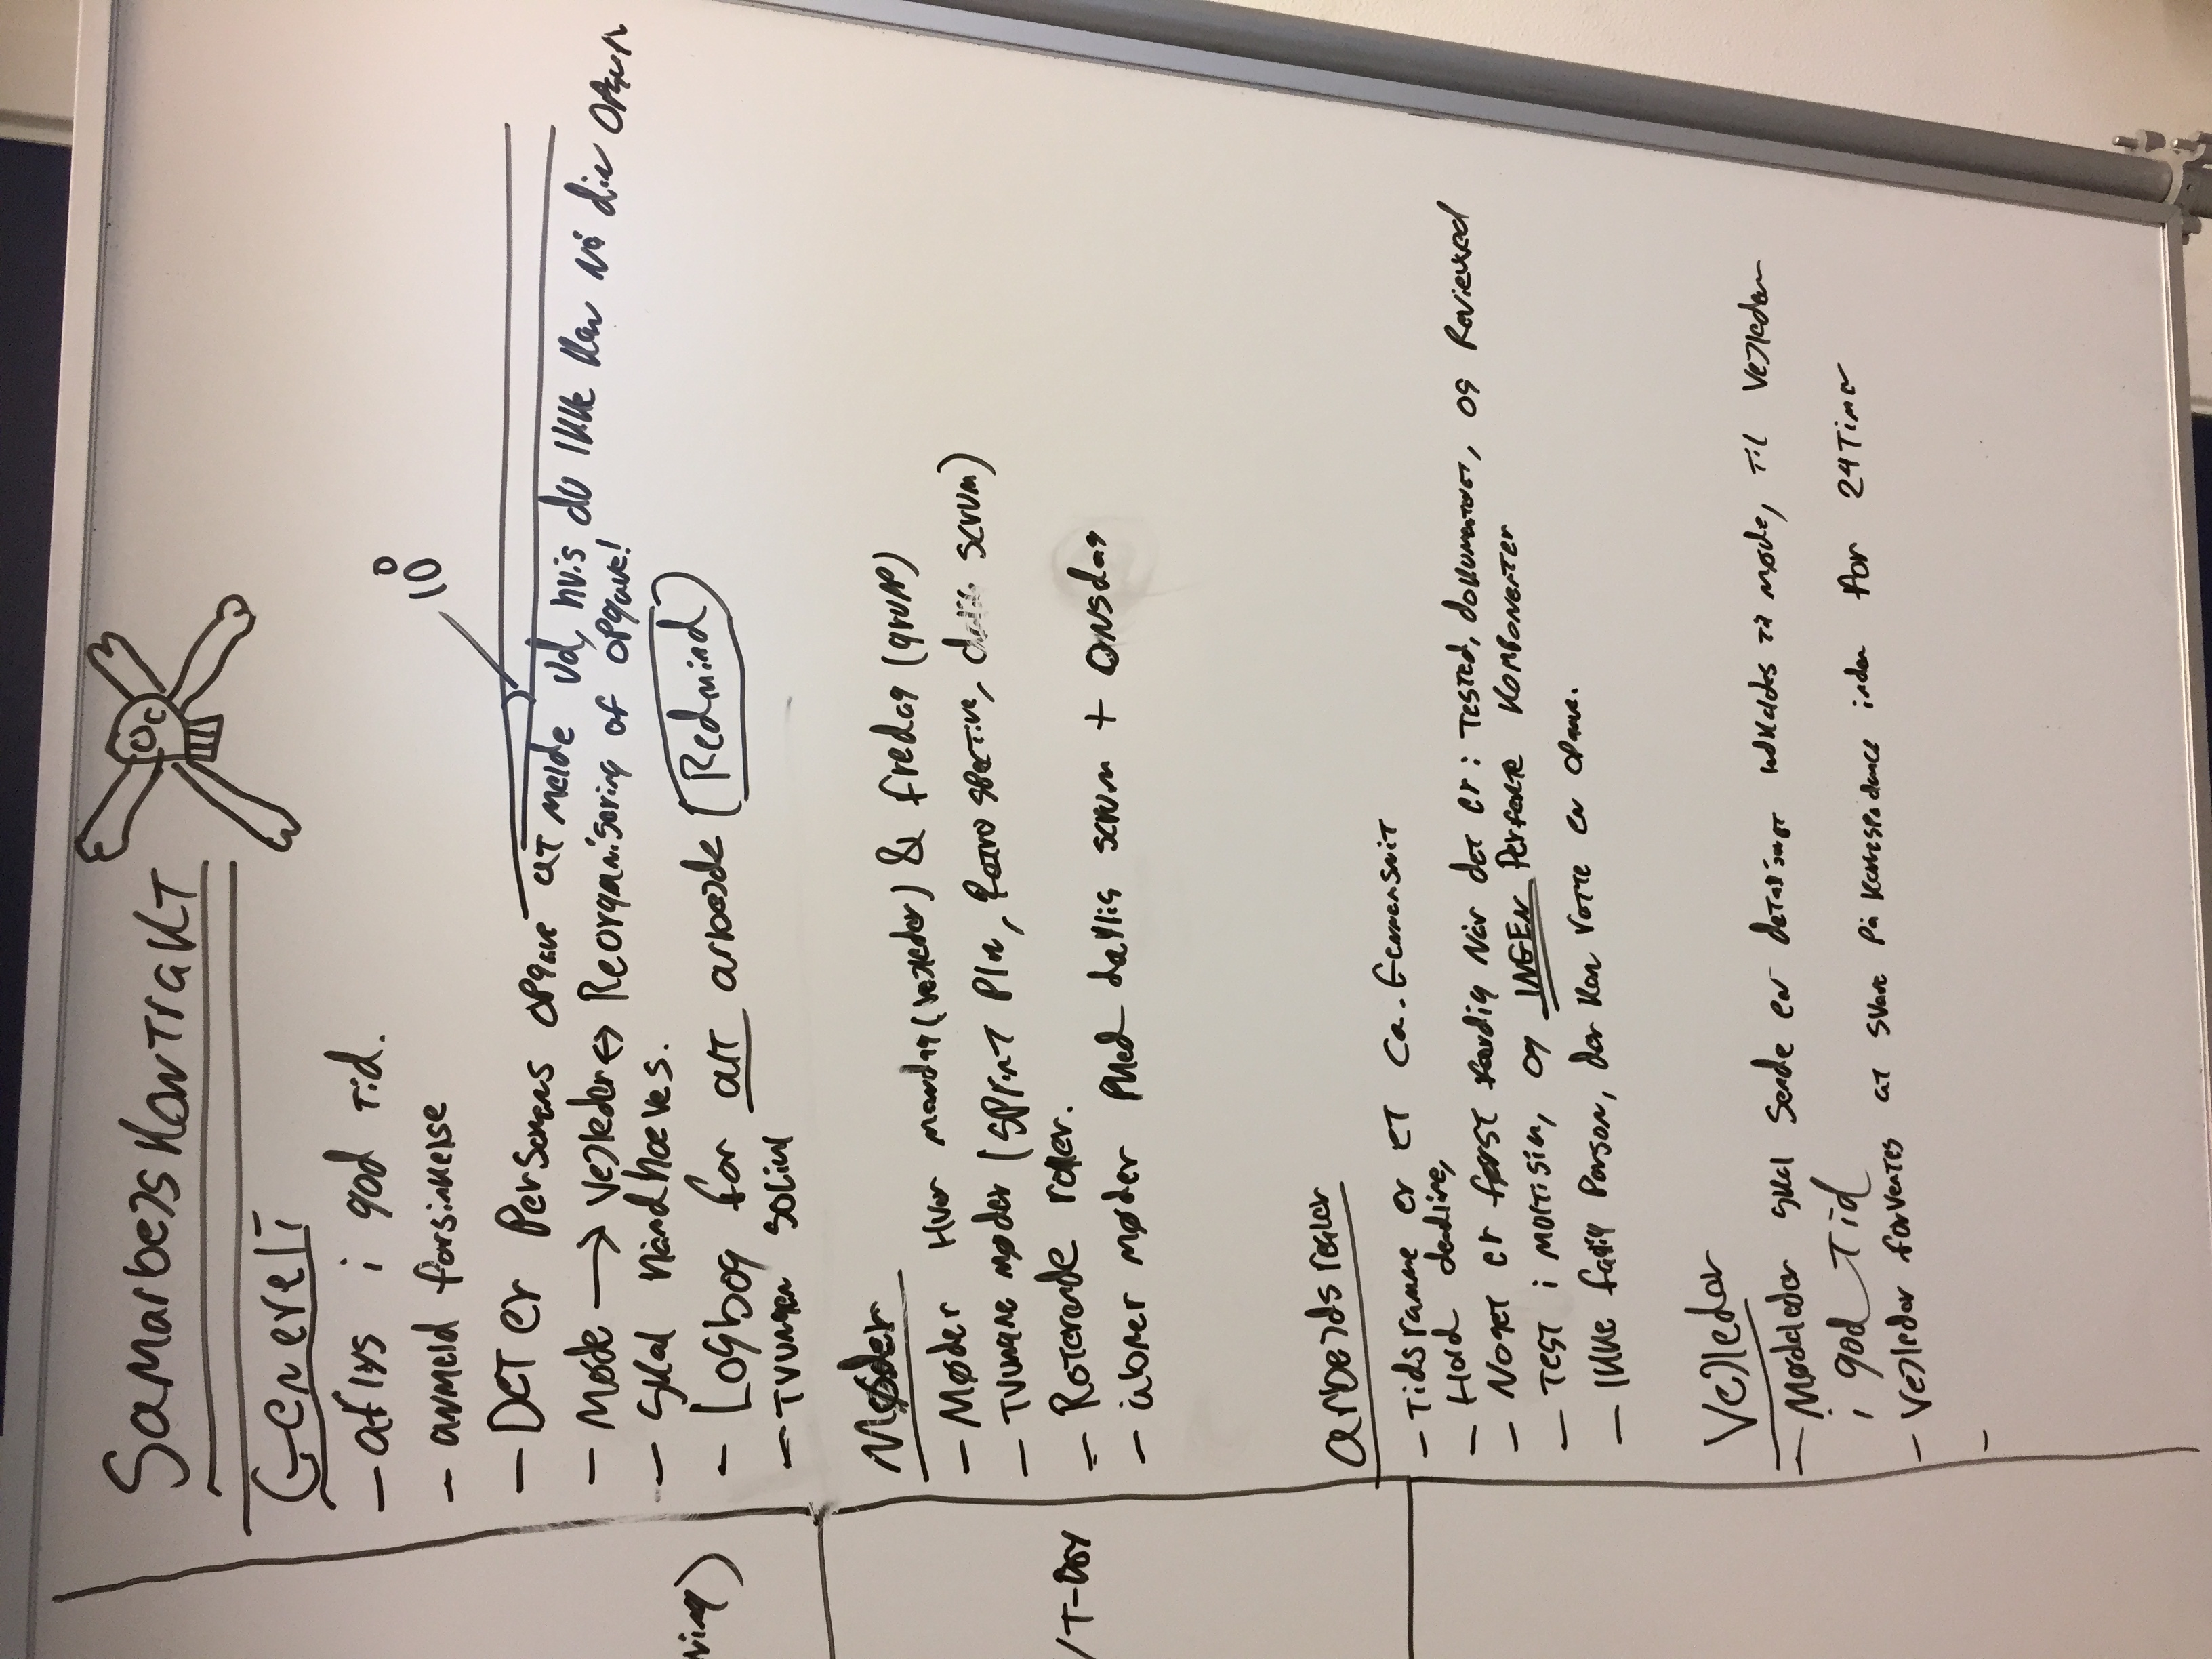 Samarbejs kontrakt
Generelt
- aflys i god tid.
- anmeld forsinkelse
10°
- Det er personens opgave at melde ud, hvis du ikke kan nå din opgave
- Møde → vejleder ↔ Reorganisering af opgave!
- Skal håndhæves.
- Logbog for alt arbejde (Redmind)
- Tvungen social
Møder
- Møder Hver mandag (vejleder) & fredag (grupp)
- Tvungne møder (sprint plan, Retrospective, daily scrum)
- Roterende roller.
- åbner møder med daglig scrum + onsdag
arbejds regler
- Tidsramme er et ca. Gennensnit
- Hold deadline,
- Noget er først færdig når det er: Tested, dokumenteret, og Reviewed
- Test i moltisim, og INGEN perfekte komponenter
- Ikke faglig person, der kan rette en opgave.
Vejleder
- Mødeleder skal sende en detaljeret indkaldes til møde, til vejledern
i god tid
- Vejleder forventes at svare på korrespondance inden for 24 Timer
-
ning)
/T-Boy